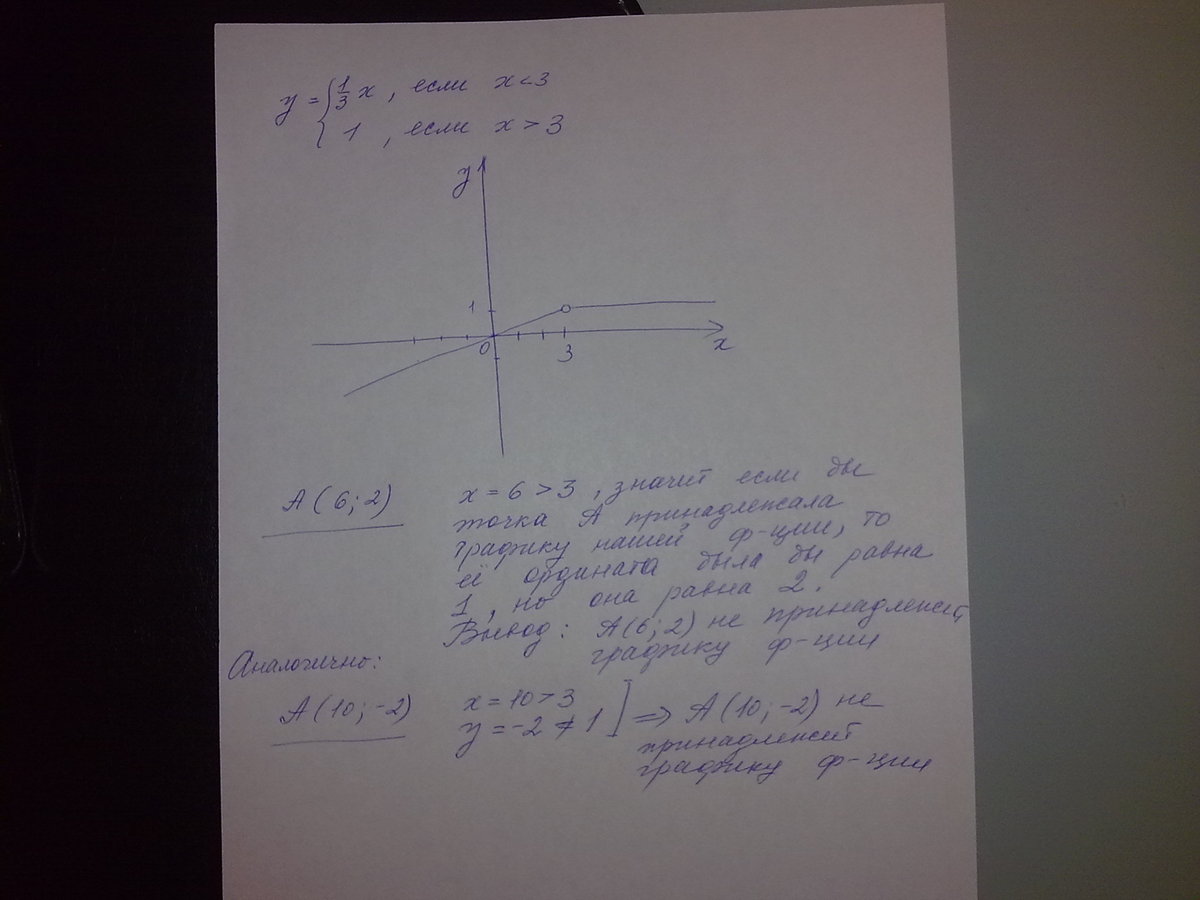 y = { 1/3 x, если x < 3
1, если x > 3
y
1
0
3
x
A(6; 2)
x = 6 > 3, значит если бы
точка A принадлежала
графику нашей ф-ции, то
её ордината была бы равна
1, но она равна 2.
Вывод: A(6; 2) не принадлежит
графику ф-ции
Аналогично:
A(10; -2)
x = 10 > 3
y = -2 ≠ 1 ] => A(10; -2) не
принадлежит
графику ф-ции